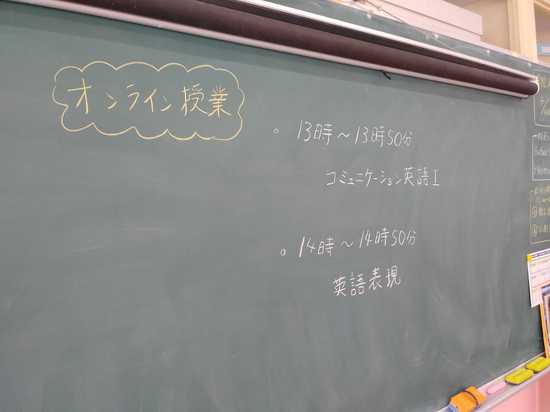 オンライン授業
。 13時～13時50分
コミュニケーション英語I
。 14時～14時50分
英語表現